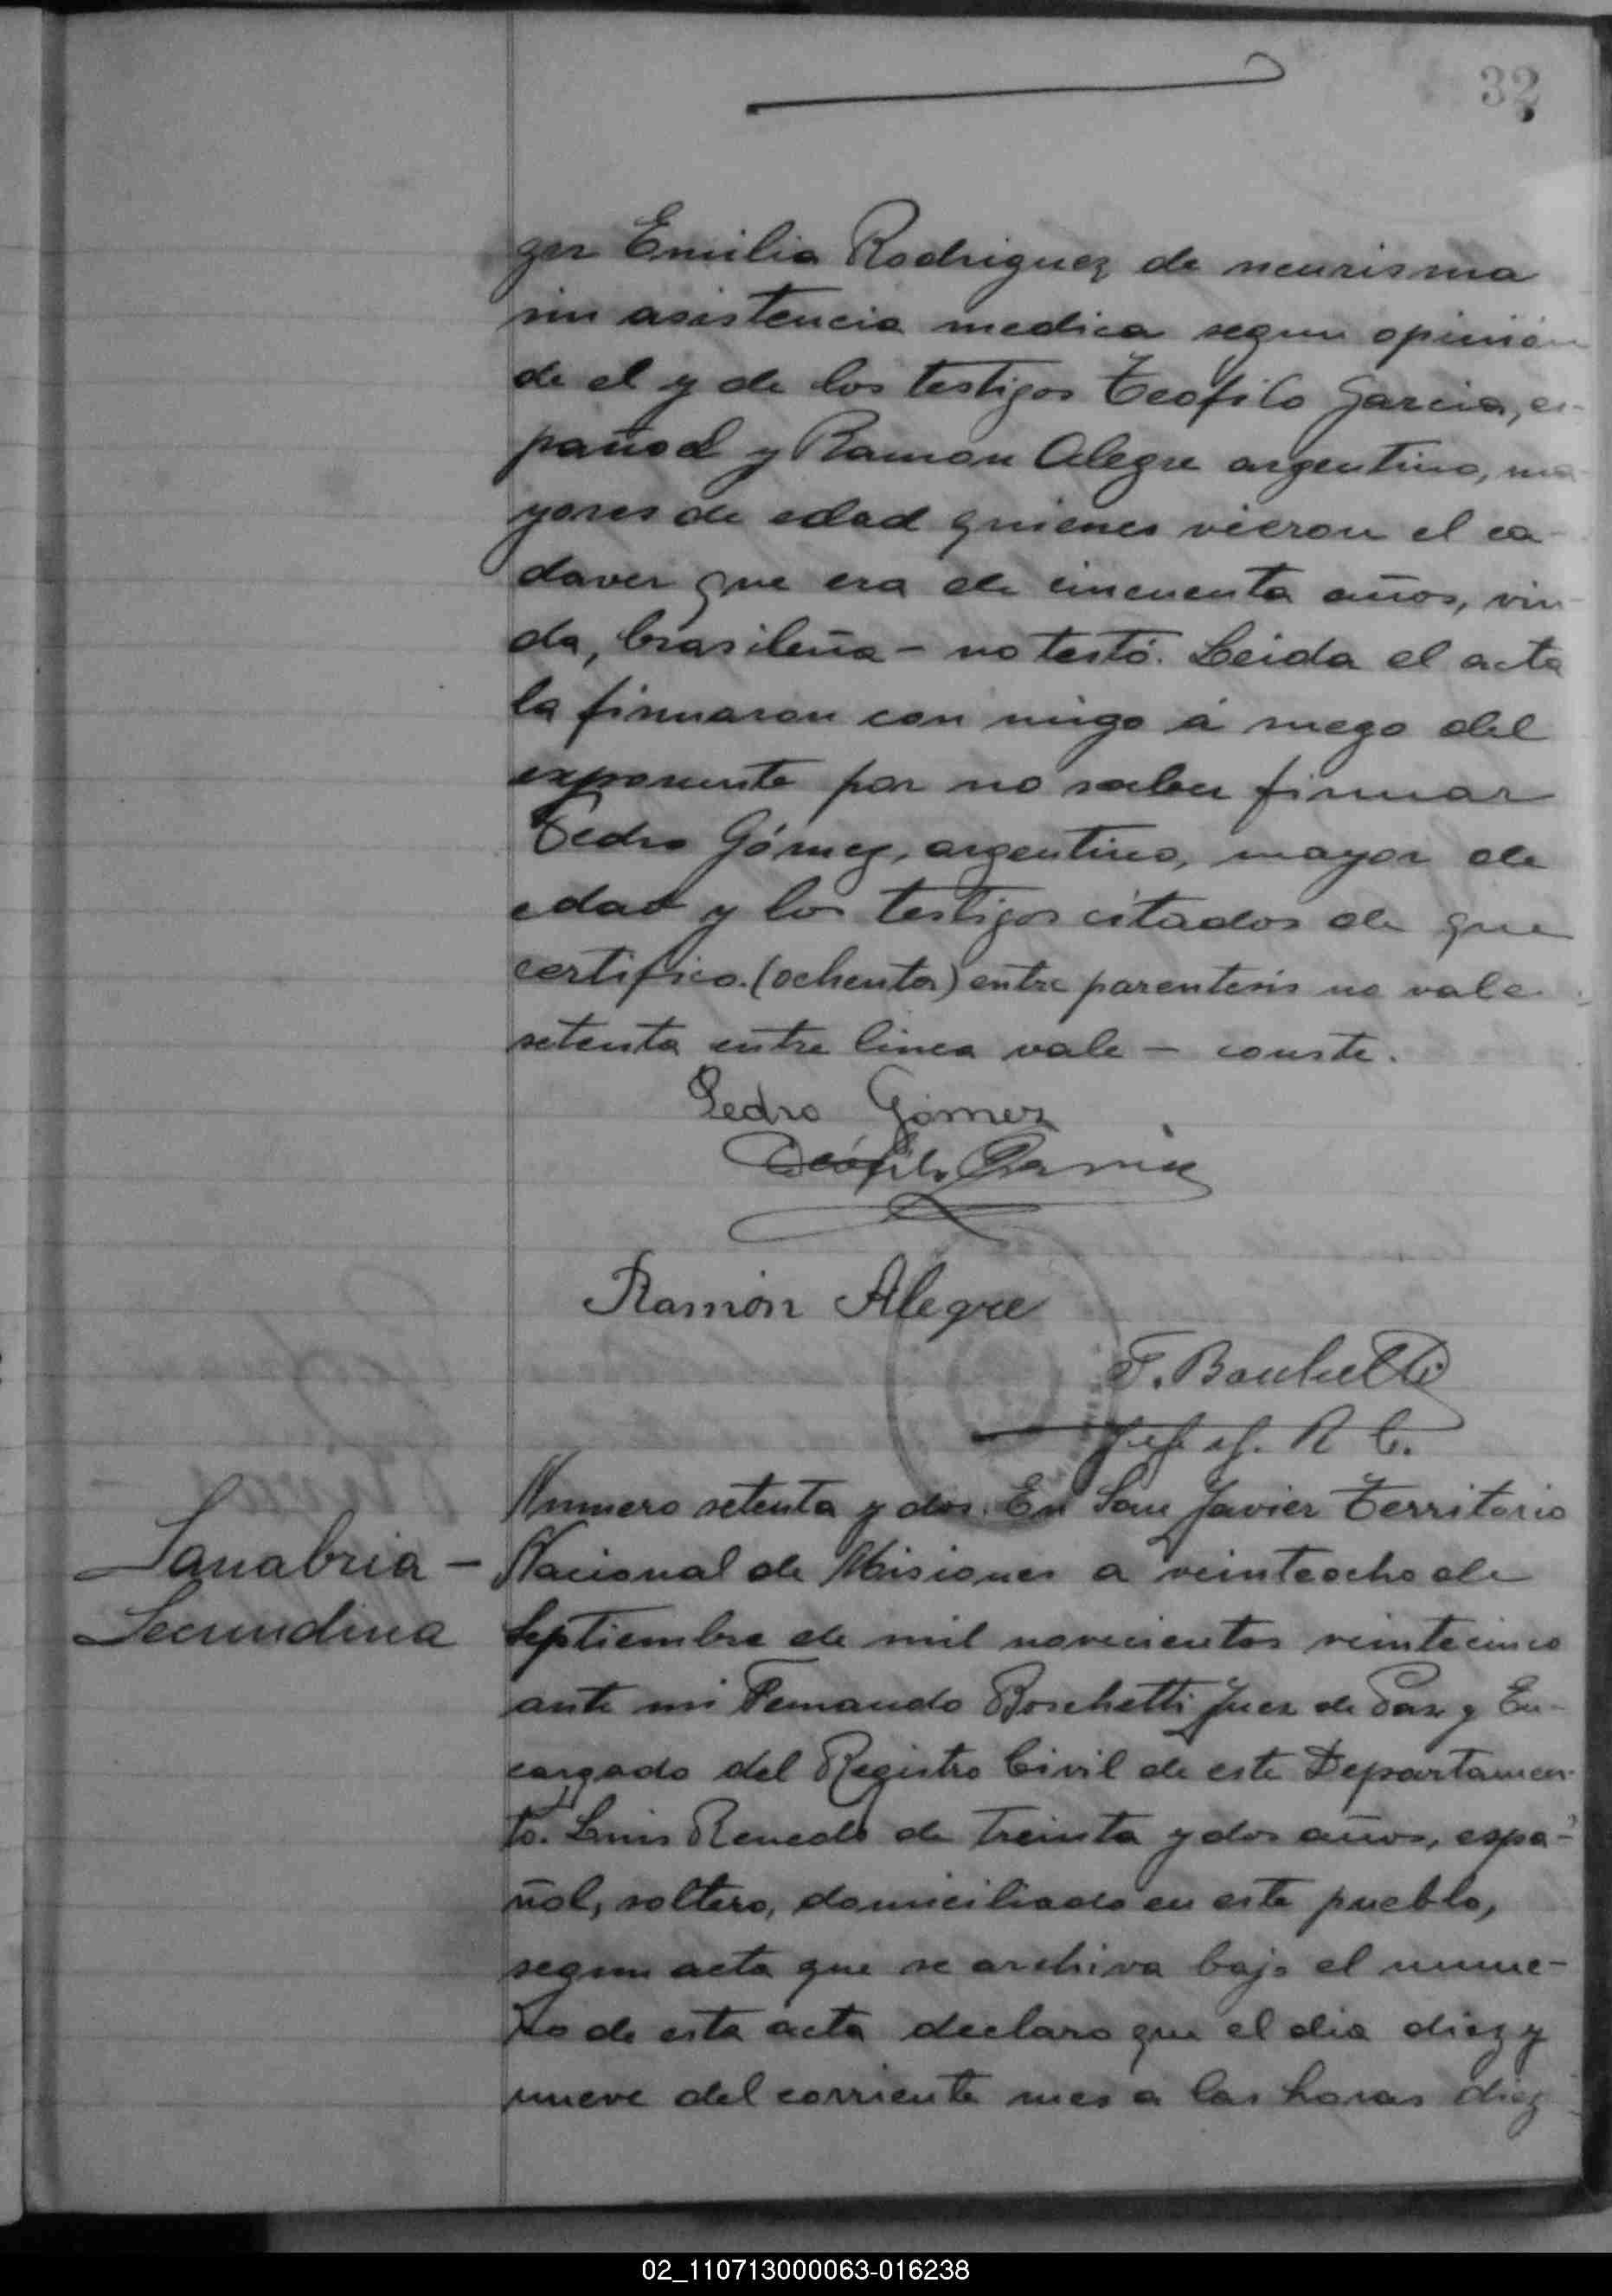 32
ger Emilia Rodriguez de neurisma
sin asistencia medica segun opinión
de el y de los testigos Teofilo Garcia, es-
pañol y Ramon Alegre argentino, ma-
yores de edad quienes vieron el ca-
daver que era de cincuenta años, viu-
da, brasileña - no testó. Leida el acta
la firmaron con migo á ruego del
exponente por no saber firmar
Pedro Gómez, argentino, mayor de
edad y los testigos citados de que
certifico. (ochenta) entre parentesis no vale
setenta entre linea vale - conste.
Pedro Gómez
Teófilo Garcia
Ramón Alegre
F. Boschetti
Jefe R C.
Numero setenta y dos. En San Javier Territorio
Sanabria - Nacional de Misiones a veinteocho de
Secundina Septiembre de mil novecientos veintecinco
ante mi Fernando Boschetti Juez de Paz y En-
cargado del Registro Civil de este Departamen-
to. Luis Renedo de treinta y dos años, espa-
ñol, soltero, domiciliado en este pueblo,
segun acta que se archiva bajo el nume-
ro de esta acta declaro que el dia diez y
nueve del corriente mes a las horas diez
02_110713000063-016238